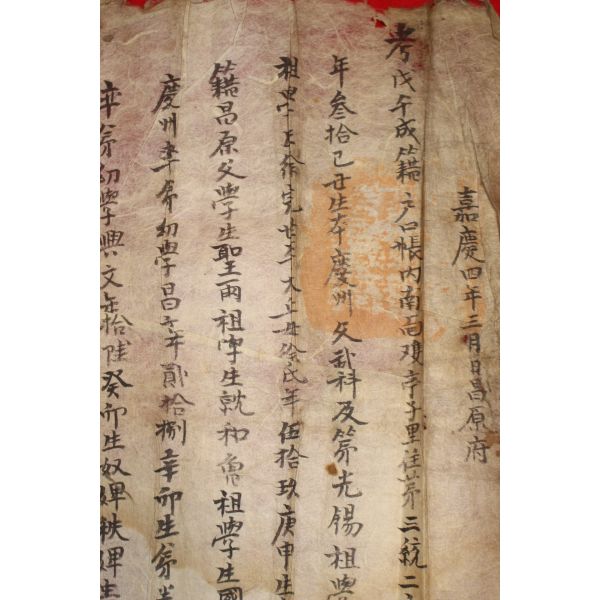 嘉慶四年三月日昌原府
考戊午成籍戶口帳內南面雙亭子里住第三統二
年叁拾己丑生本慶州父武科及第光錫祖學
祖學生徐 母徐氏年伍拾玖庚申生
籍昌原父學生聖兩祖學生就和曾祖學生國
慶州率弟幼學昌 年貳拾捌辛卯生弟
率弟幼學興文年拾陸癸卯生奴婢秩婢生